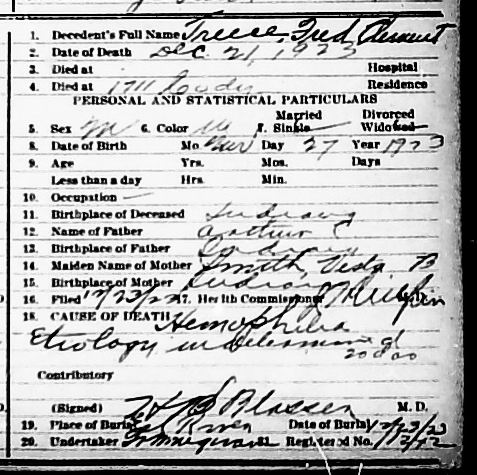 1. Decedent's Full Name Treese, Fred Clement
2. Date of Death Dec. 21, 1923
3. Died at Hospital
4. Died at 1711 Cody Residence
PERSONAL AND STATISTICAL PARTICULARS
Married Divorced
5. Sex M 6. Color W 7. Single Widowed
8. Date of Birth Mo. Nov Day 27 Year 1923
9. Age Yrs. Mos. Days
Less than a day Hrs. Min.
10. Occupation —
11. Birthplace of Deceased Indiana
12. Name of Father Arthur C
13. Birthplace of Father Indiana
14. Maiden Name of Mother Smith, Veda B
15. Birthplace of Mother Indiana
16. Filed 12/23/23 17. Health Commissioner
18. CAUSE OF DEATH Hemophilia
Etiology undetermined
20 da
Contributory
(Signed) M. D.
19. Place of Burial Eel River Date of Burial 12/23/23
20. Undertaker 21. Registered No.